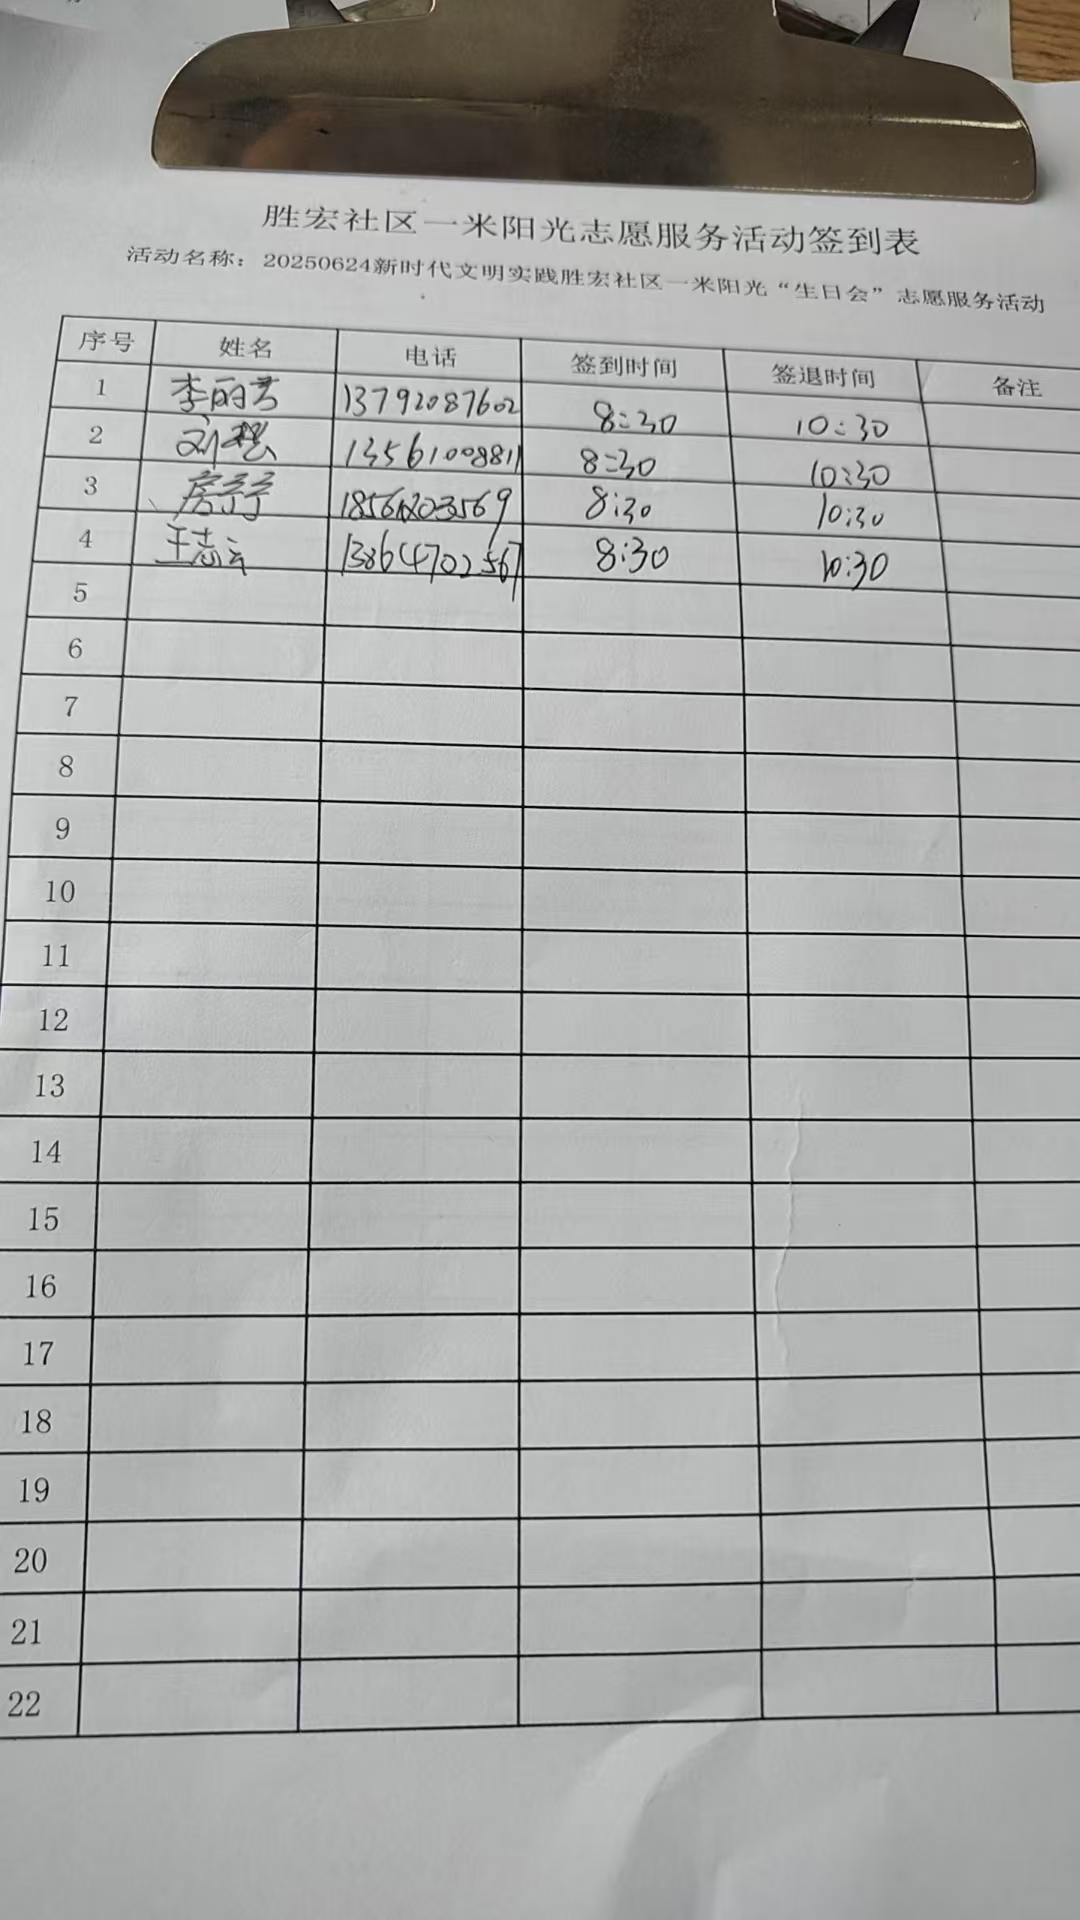 胜宏社区一米阳光志愿服务活动签到表
活动名称：20250624新时代文明实践胜宏社区一米阳光“生日会”志愿服务活动
序号 姓名 电话 签到时间 签退时间 备注
1 李丽芳 13792087602 8:30 10:30
2 刘 13561008811 8:30 10:30
3 房 18561203569 8:30 10:30
4 王志云 13864702567 8:30 10:30
5
6
7
8
9
10
11
12
13
14
15
16
17
18
19
20
21
22